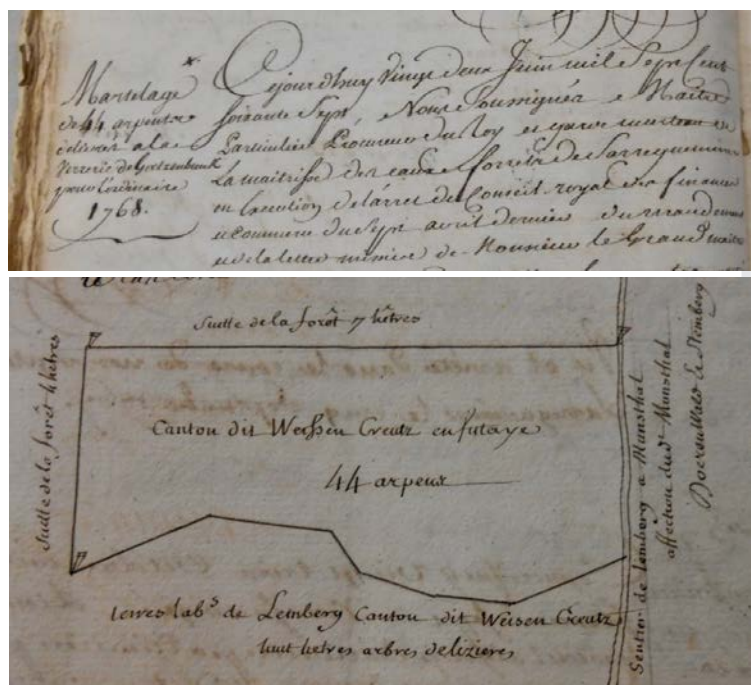 Martelage
de 44 arpents
délivrés a la
Verrerie de Goetzenbruck
pour l'ordinaire
1768.
Cejourd'huy vingt deux Juin mil Sept Cent
soixante Sept, Nous Soussignés Maitre
Particulier Procureur du Roy et garde marteau en
La maitrise des eaux et forrêts de Sarreguemines
en Execution de l'arret du Conseil royal des finances
et Commerce du Sept avril dernier du mandement
et de la lettre missive de Monsieur le Grand maitre
Suitte de la forêt 7 hêtres
Suitte de la forêt 4 hêtres
Canton dit Weissen Creutz en futaye
44 arpens
terres lab.s de Lemberg Canton dit Weisen Creutz
huit hêtres arbres de lizieres
Sentier de Lemberg a Munsthal
affection dud.t Munsthal